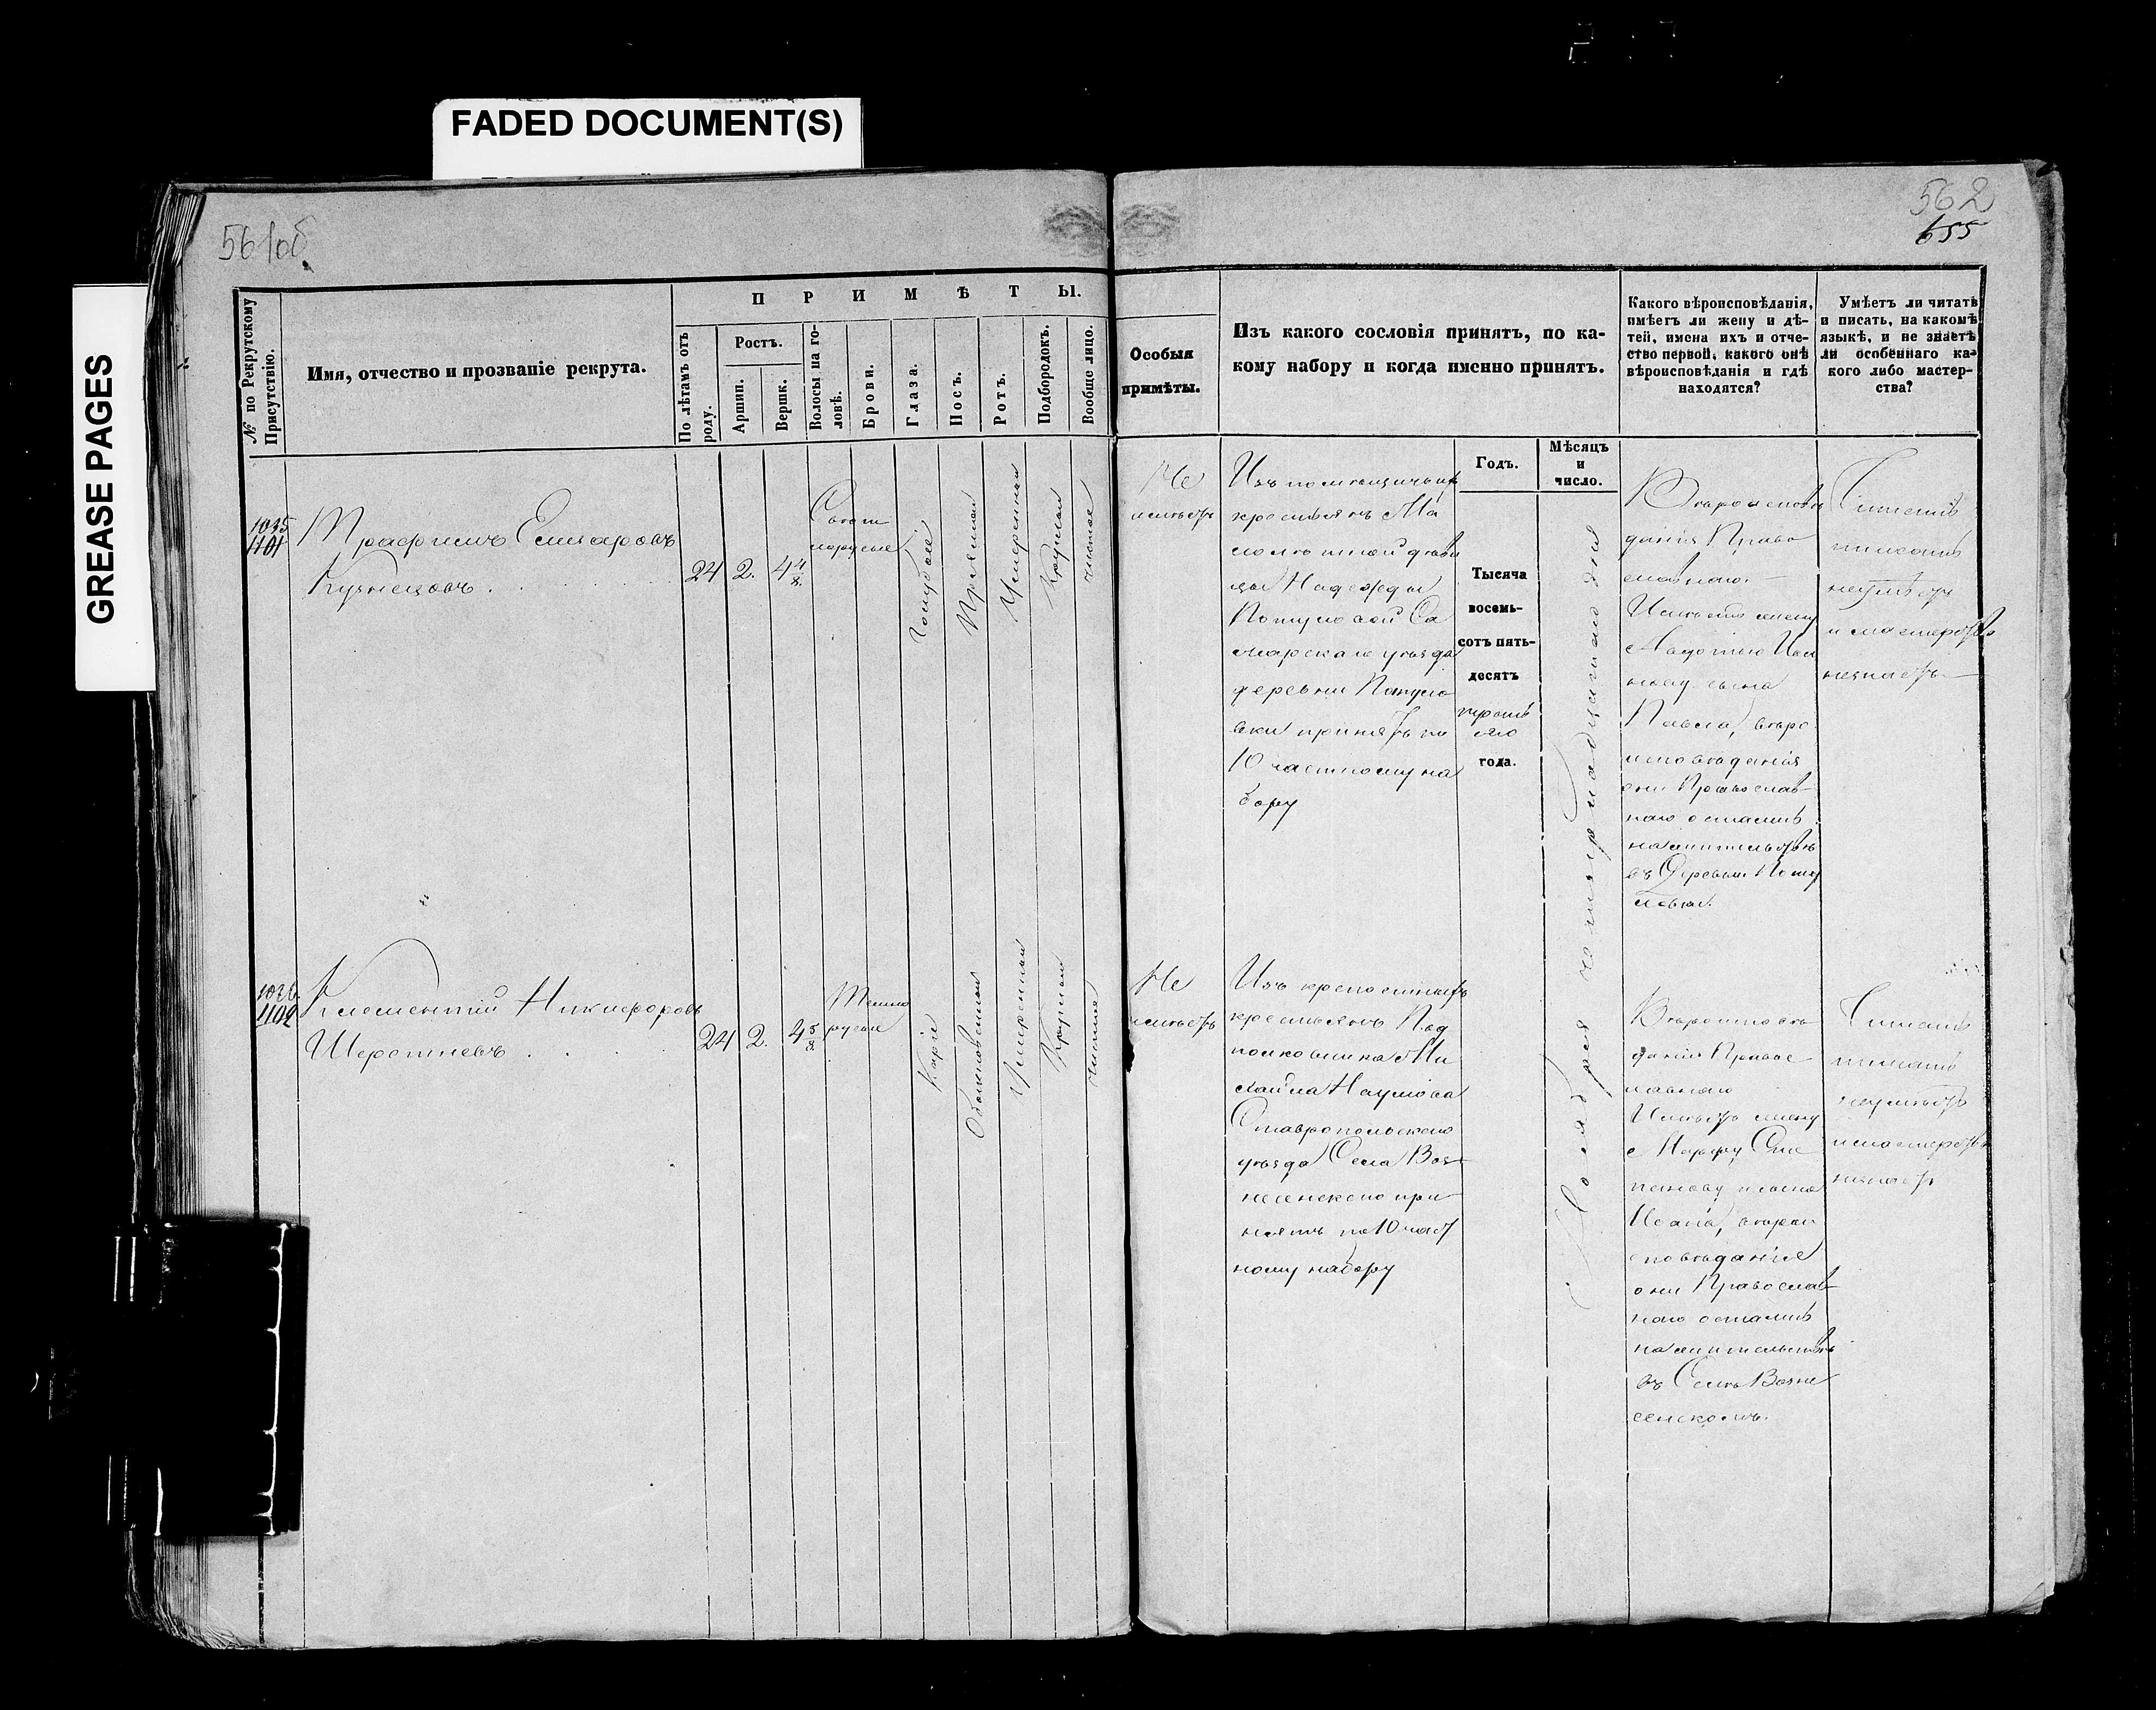 FADED DOCUMENT(S)
GREASE PAGES
561об.
562
655
№ по Рекрутскому
Присутствію.
Имя, отчество и прозваніе рекрута.
ПРИМѢТЫ.
По лѣтамъ отъ
роду.
Ростъ.
Аршин.
Вершк.
Волосы на го-
ловѣ.
Брови.
Глаза.
Носъ.
Ротъ.
Подбородокъ.
Вообще лицо.
Особыя
примѣты.
Изъ какого сословія принятъ, по ка-
кому набору и когда именно принятъ.
Годъ.
Мѣсяцъ
и
число.
Какого вѣроисповѣданія,
имѣетъ ли жену и дѣ-
тей, имена ихъ и отче-
ство первой, какого онѣ
вѣроисповѣданія и гдѣ
находятся?
Умѣетъ ли читать
и писать, на какомъ
языкѣ, и не знаетъ
ли особеннаго ка-
кого либо мастер-
ства?
1035
1101
Трафимъ Елизаровъ
Кузнецовъ
24
2.
4 4/8
Свѣтл
порусые
Голубые
Прямой
Умеренный
Круглой
чистое
Не
имѣетъ
крестьянъ Ма
цы Надежды
Самарскаго уѣзда
деревни
вки принятъ по
10 частному на
бору
Тысяча
восемь-
сотъ пять-
десятъ
третьяго
года.
Ноября четырнадцатаго дня
Вѣроисповѣ
данія Право
славнаго.
Имѣетъ жену
сына
Павла, вѣро
исповѣданія
они Православ
наго остались
на жительствѣ
въ Деревни
Читать
писать
неумѣетъ
и мастерства
незнаетъ
1036
1102
Клементий Никифоровъ
Шереметевъ
24
2.
4 5/8
Темно
русые
Каріе
Обыкновенной
Умеренной
Круглой
чистое
Не
имѣетъ
Изъ крепостныхъ
крестьянъ Под
полковника Ми
хаила Наумова
Ставропольскаго
уѣзда Села Воз
несенскаго при
нятъ по 10 част
ному набору
Вѣроисповѣ
данія Правос
лавнаго
Имѣетъ жену
Марфу Сте
панову и сына
Ивана, вѣроис
повѣданія
они Православ
наго остались
на жительствѣ
въ Селѣ Возне
сенскомъ.
Читать
писать
неумѣетъ
и мастерства
незнаетъ